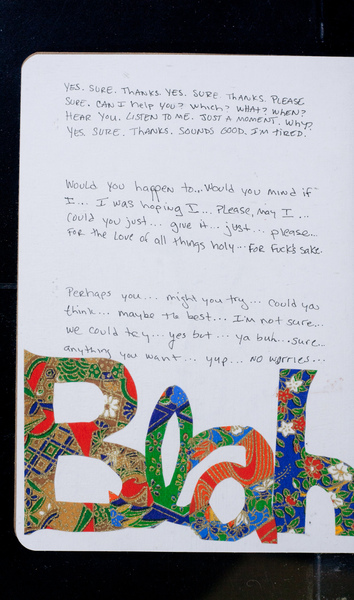 YES. SURE. THANKS. YES. SURE. THANKS. PLEASE
SURE. CAN I help you? Which? WHAT? WHEN?
HEAR YOU. LISTEN TO ME. JUST A MOMENT. WHY?
YES. SURE. THANKS. SOUNDS GOOD. I'M TIRED.
Would you happen to... Would you mind if
I... I was hoping I... Please, may I...
Could you just... give it... just... please...
For the Love of all things holy... For Fuck's sake.
Perhaps you... might you try... could you
think... maybe the best... I'm not sure...
we could try... yes but... ya buh... sure...
anything you want... yup... NO WORRIES...
Blah